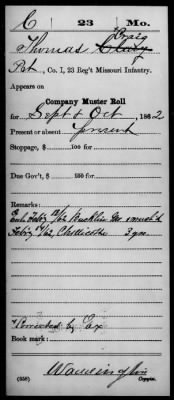 C 23 Mo.
Craig
Thomas
Pvt, Co. I, 23 Reg't Missouri Infantry.
Appears on
Company Muster Roll
for Sept & Oct, 1862
Present or absent Present
Stoppage, $ 100 for
Due Gov't, $ 100 for
Remarks:
Enl. Feby 18/62 Bucklin Mo
Feby /62, Chillicothe 3 yrs.
Corrected by
Book mark:
(858) Copyist.